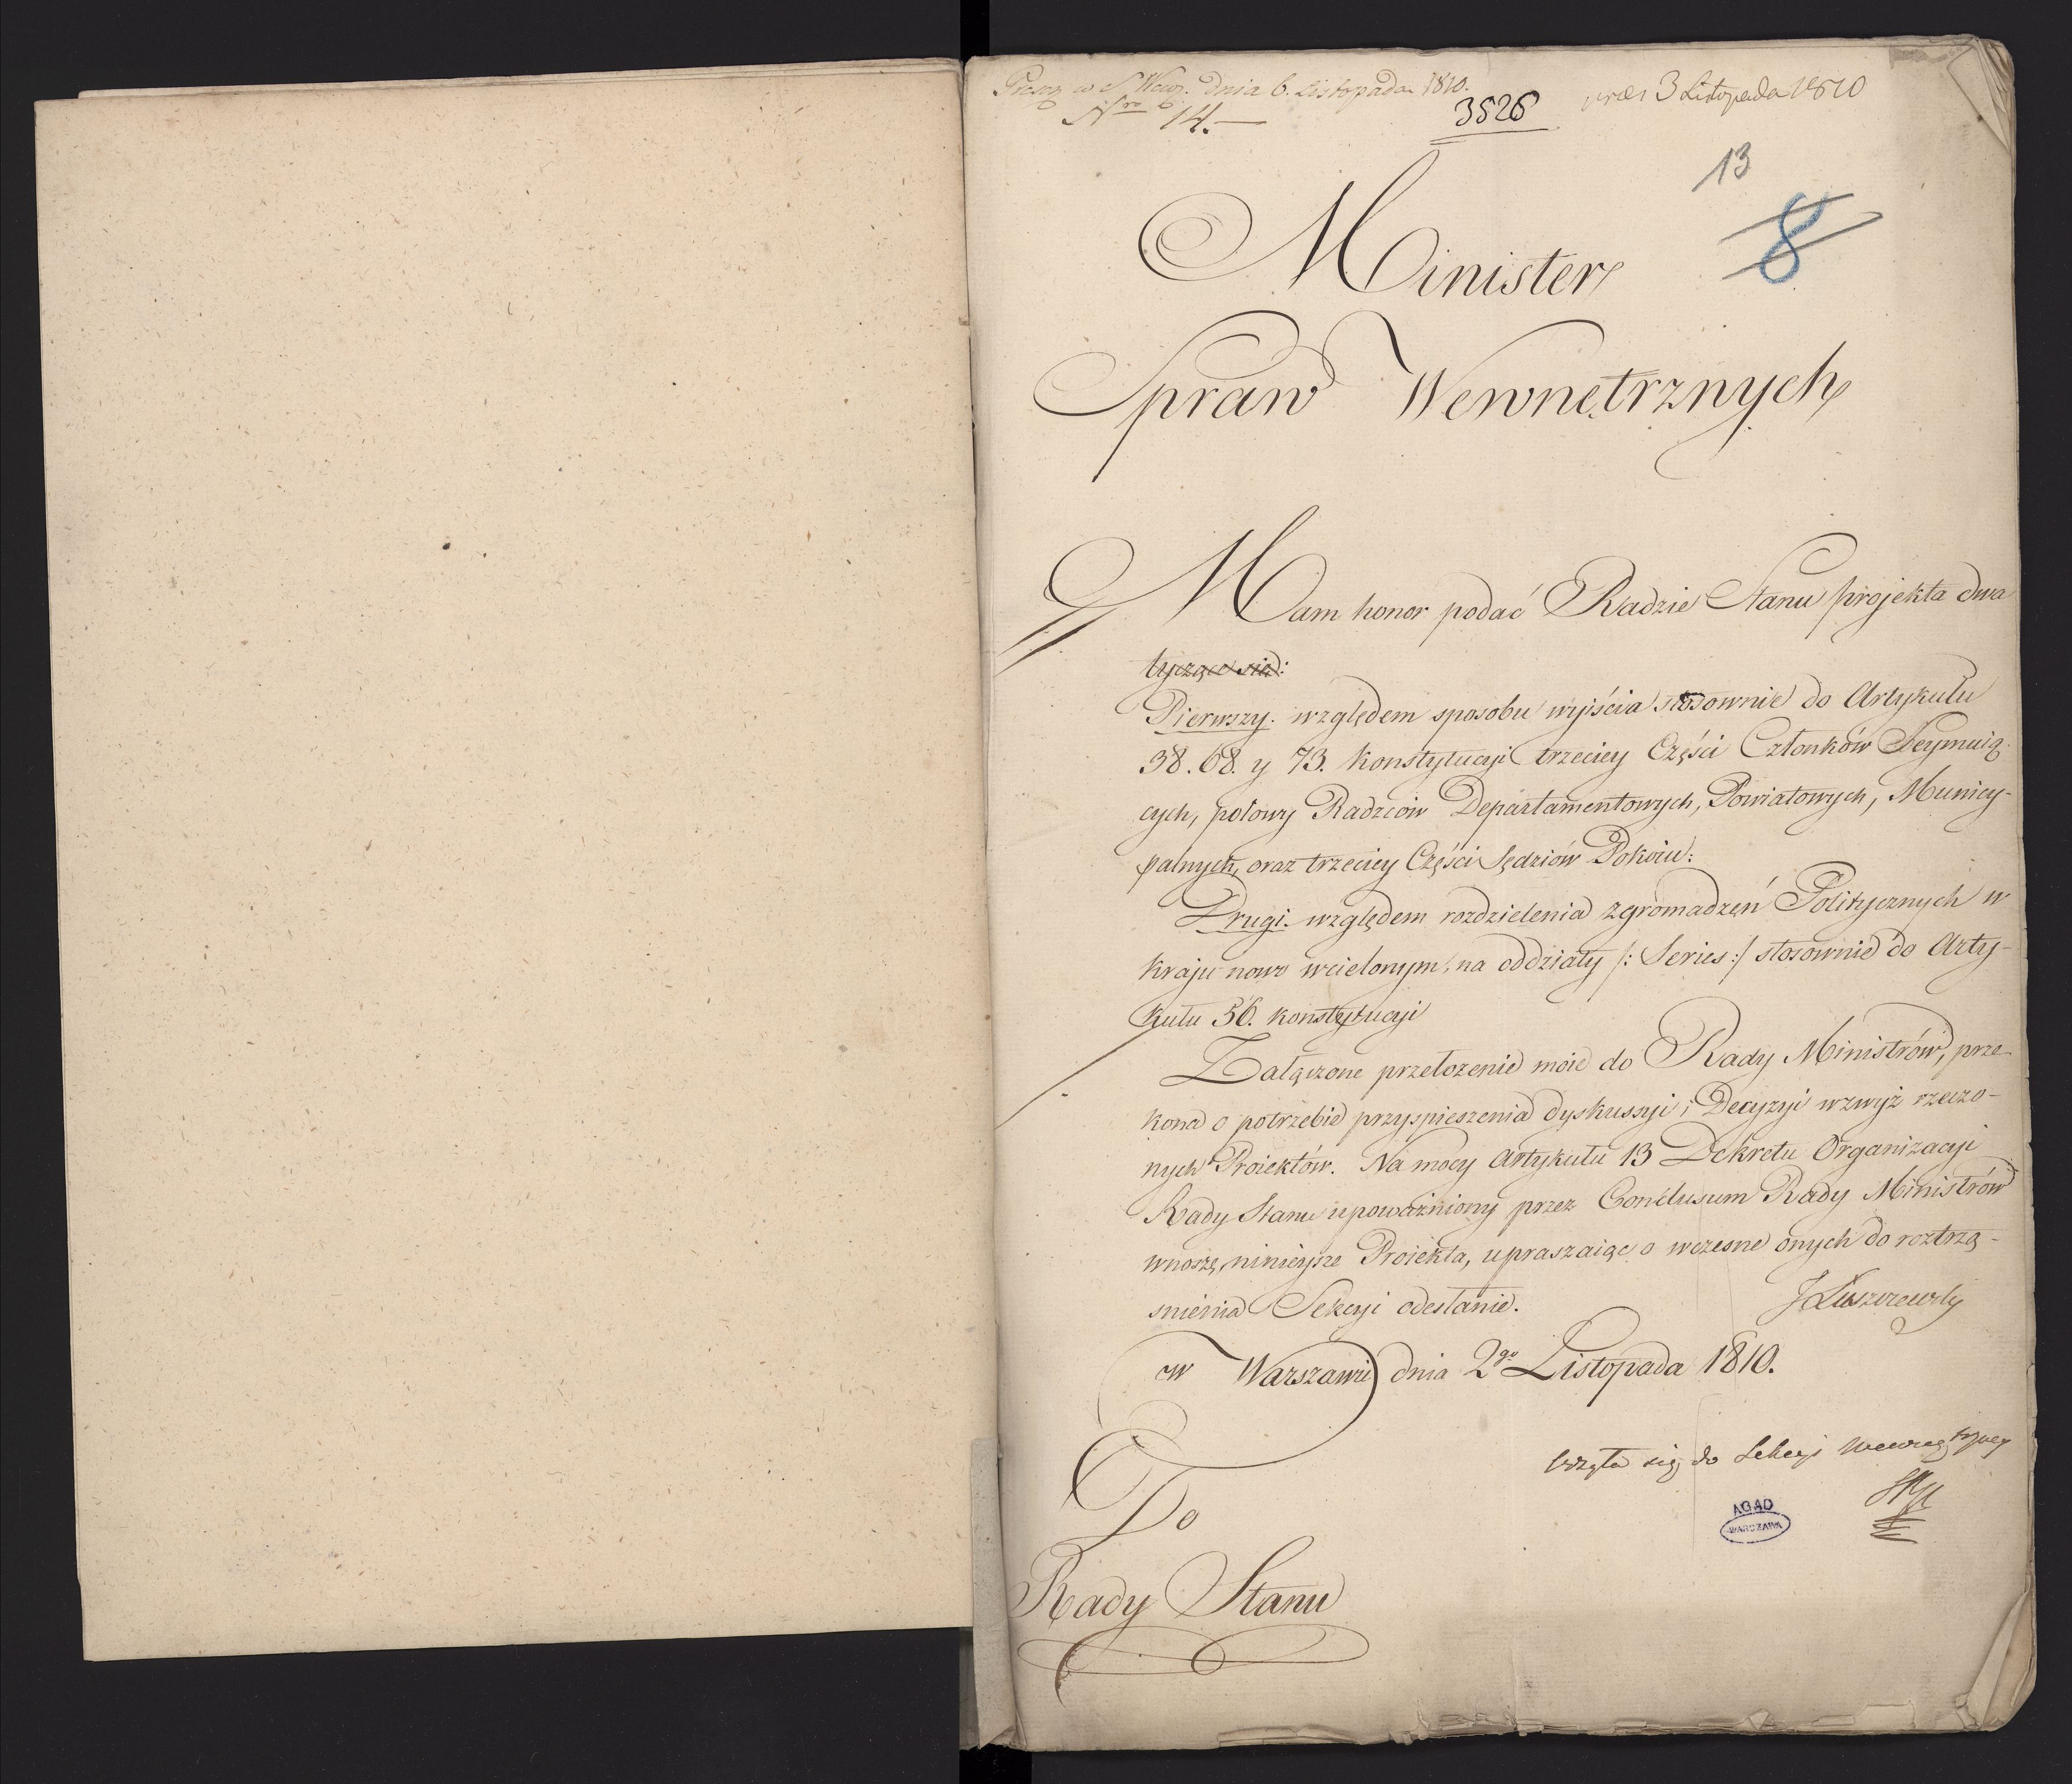 Prez. w S. Wew. dnia 6. Listopada 1810.
Nro 14.—
3526
præs 3 Listopada 1810
13
8
Minister
Spraw Wewnętrznych
Mam honor podać Radzie Stanu projekta dwa
tyczące się:
Pierwszy. względem sposobu wyiścia stosownie do Artykułu
38. 68. y 73. Konstytucyi trzeciey Części Członków Seymuią-
cych, połowy Radzców Departamentowych, Powiatowych, Municy-
palnych, oraz trzeciey Części Sędziów Pokoiu:
Drugi. względem rozdzielenia zgromadzeń Politycznych w
Kraju nowo wcielonym, na oddziały /: Series :/ stosownie do Arty-
kułu 56. konstytucyi
Załączone przełożenie moie do Rady Ministrów, prze-
kona o potrzebie przyspieszenia dyskussyi i Decyzyi wzwyż rzeczo-
nych Proiektów. Na mocy Artykułu 13 Dekretu Organizacyi
Rady Stanu upoważniony przez Conclusum Rady Ministrów
wnoszę ninieysze Proiekta, upraszaiąc o wczesne onych do roztrzą-
śnienia Sekcyi odesłanie.
J Łuszczewsky
w Warszawie dnia 2go Listopada 1810.
odsyła się do Sekcyi wewnętrzney
AGAD
WARSZAWA
Do
Rady Stanu